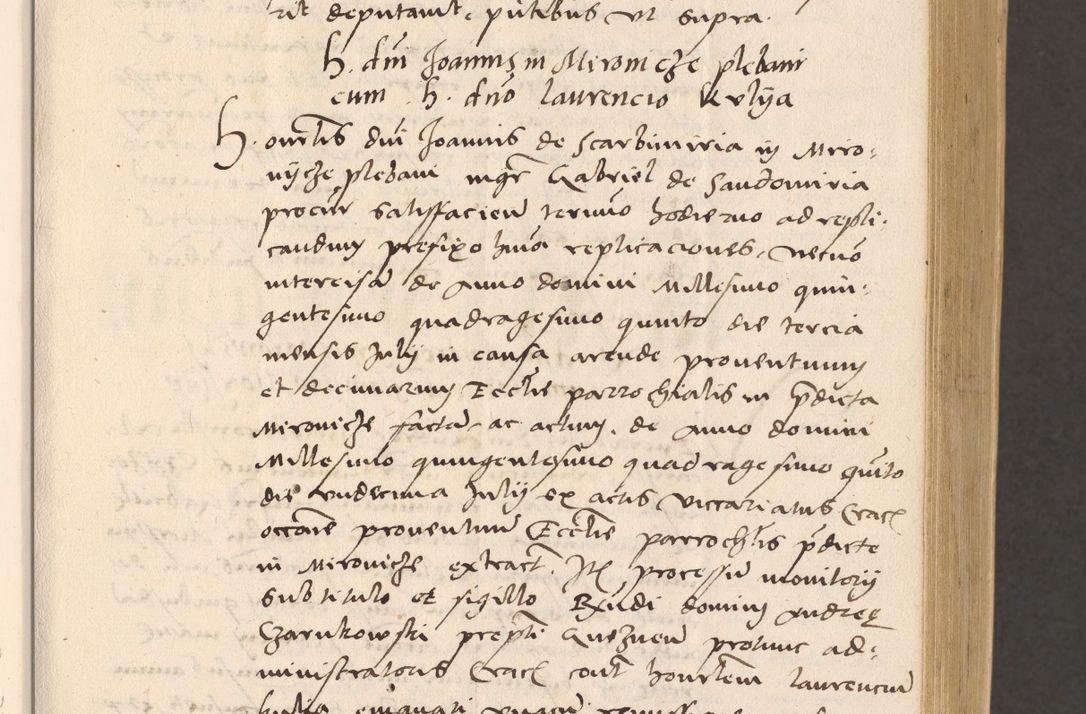 rit deputavit, pntibus ut supra.
h. dni Joannis in Mironicze plebani
cum h. dno Laurencio Kulija
Honrlis dni Joannis de Scarbimiria in Miro-
nijcze plebani mgr Gabriel de Sandomiria
procur satisfaciens termino hodierno ad repli-
candum prefixo huius replicaciones, necnon
intercisam de Anno domini Millesimo quin-
gentesimo quadragesimo quinto die tercia
mensis Julij in causa arende proventuum
et decimarum Ecclie parrochialis in predicta
Mironicze factam ac actum de Anno domini
Millesimo quingentesimo quadragesimo quinto
die undecima Julij ex actis vicariatus Crac
occone proventuum Ecclie parrochlis predicte
in Mironicze extract. Itz processum monitorij
sub titulo et sigillo Rndi domini Andree
Czarnkowski prepti Gneznen protunc ad-
ministratoris Crac cont honrlem Laurencium
Kulija emanari